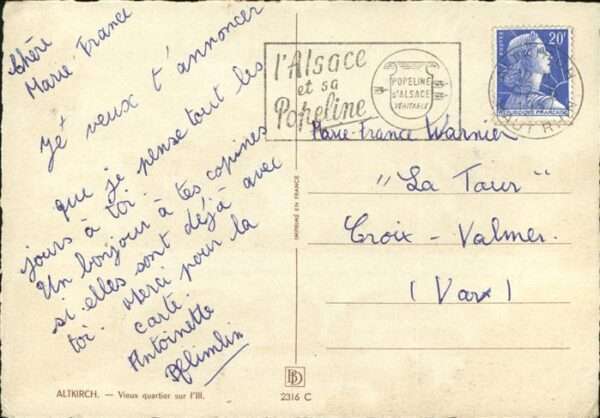 Chère
Marie France
Je veux t'annoncer
que je pense tout les
jours à toi.
Un bonjour à tes copines
si elles sont déjà avec
toi. Merci pour la
carte.
Antoinette
Pflimlin
ALTKIRCH. — Vieux quartier sur l'Ill.
IMPRIMÉ EN FRANCE
2316 C
l'Alsace
et sa
Popeline
POPELINE
D'ALSACE
VÉRITABLE
POSTES
20F
RÉPUBLIQUE FRANÇAISE
HAUT RHIN
Marie-France Warnier
"La Tour"
Croix-Valmer.
(Var)